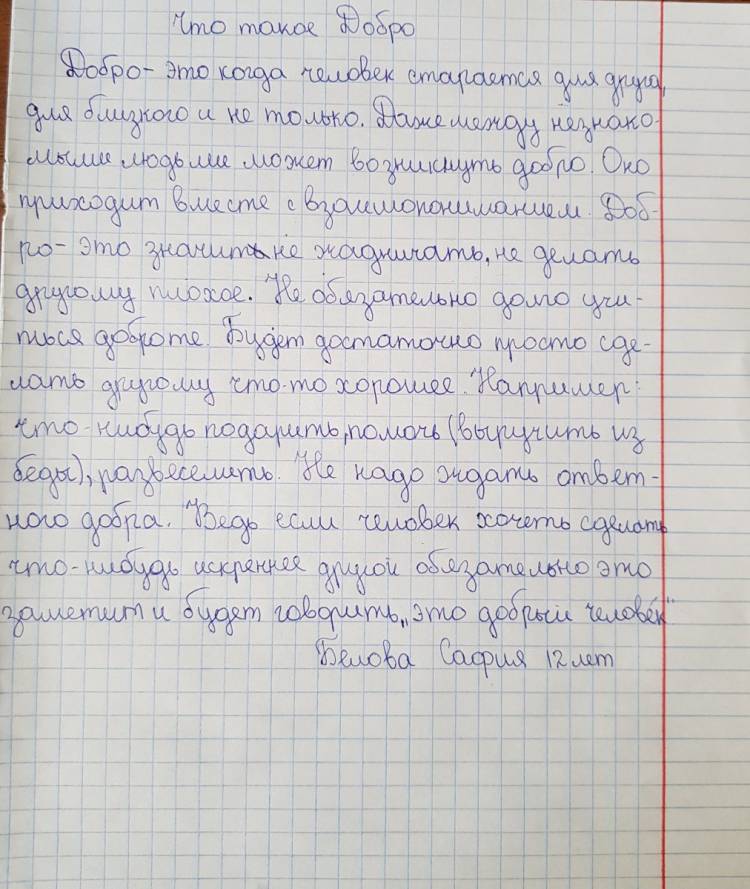 Что такое Добро
Добро- это когда человек старается для друга,
для близкого и не только. Даже между незнако-
мыми людьми может возникнуть добро. Оно
приходит вместе с взаимопониманием. Доб-
ро- это значить не жадничать, не делать
другому плохое. Не обязательно долго учи-
ться доброте. Будет достаточно просто сде-
лать другому что-то хорошее. Например:
что-нибудь подарить, помочь (выручить из
беды), развеселить. Не надо ждать ответ-
ного добра. Ведь если человек хочеть сделать
что-нибудь искреннее другой обязательно это
заметит и будет говорить „это добрый человек"
Белова Сафия 12 лет